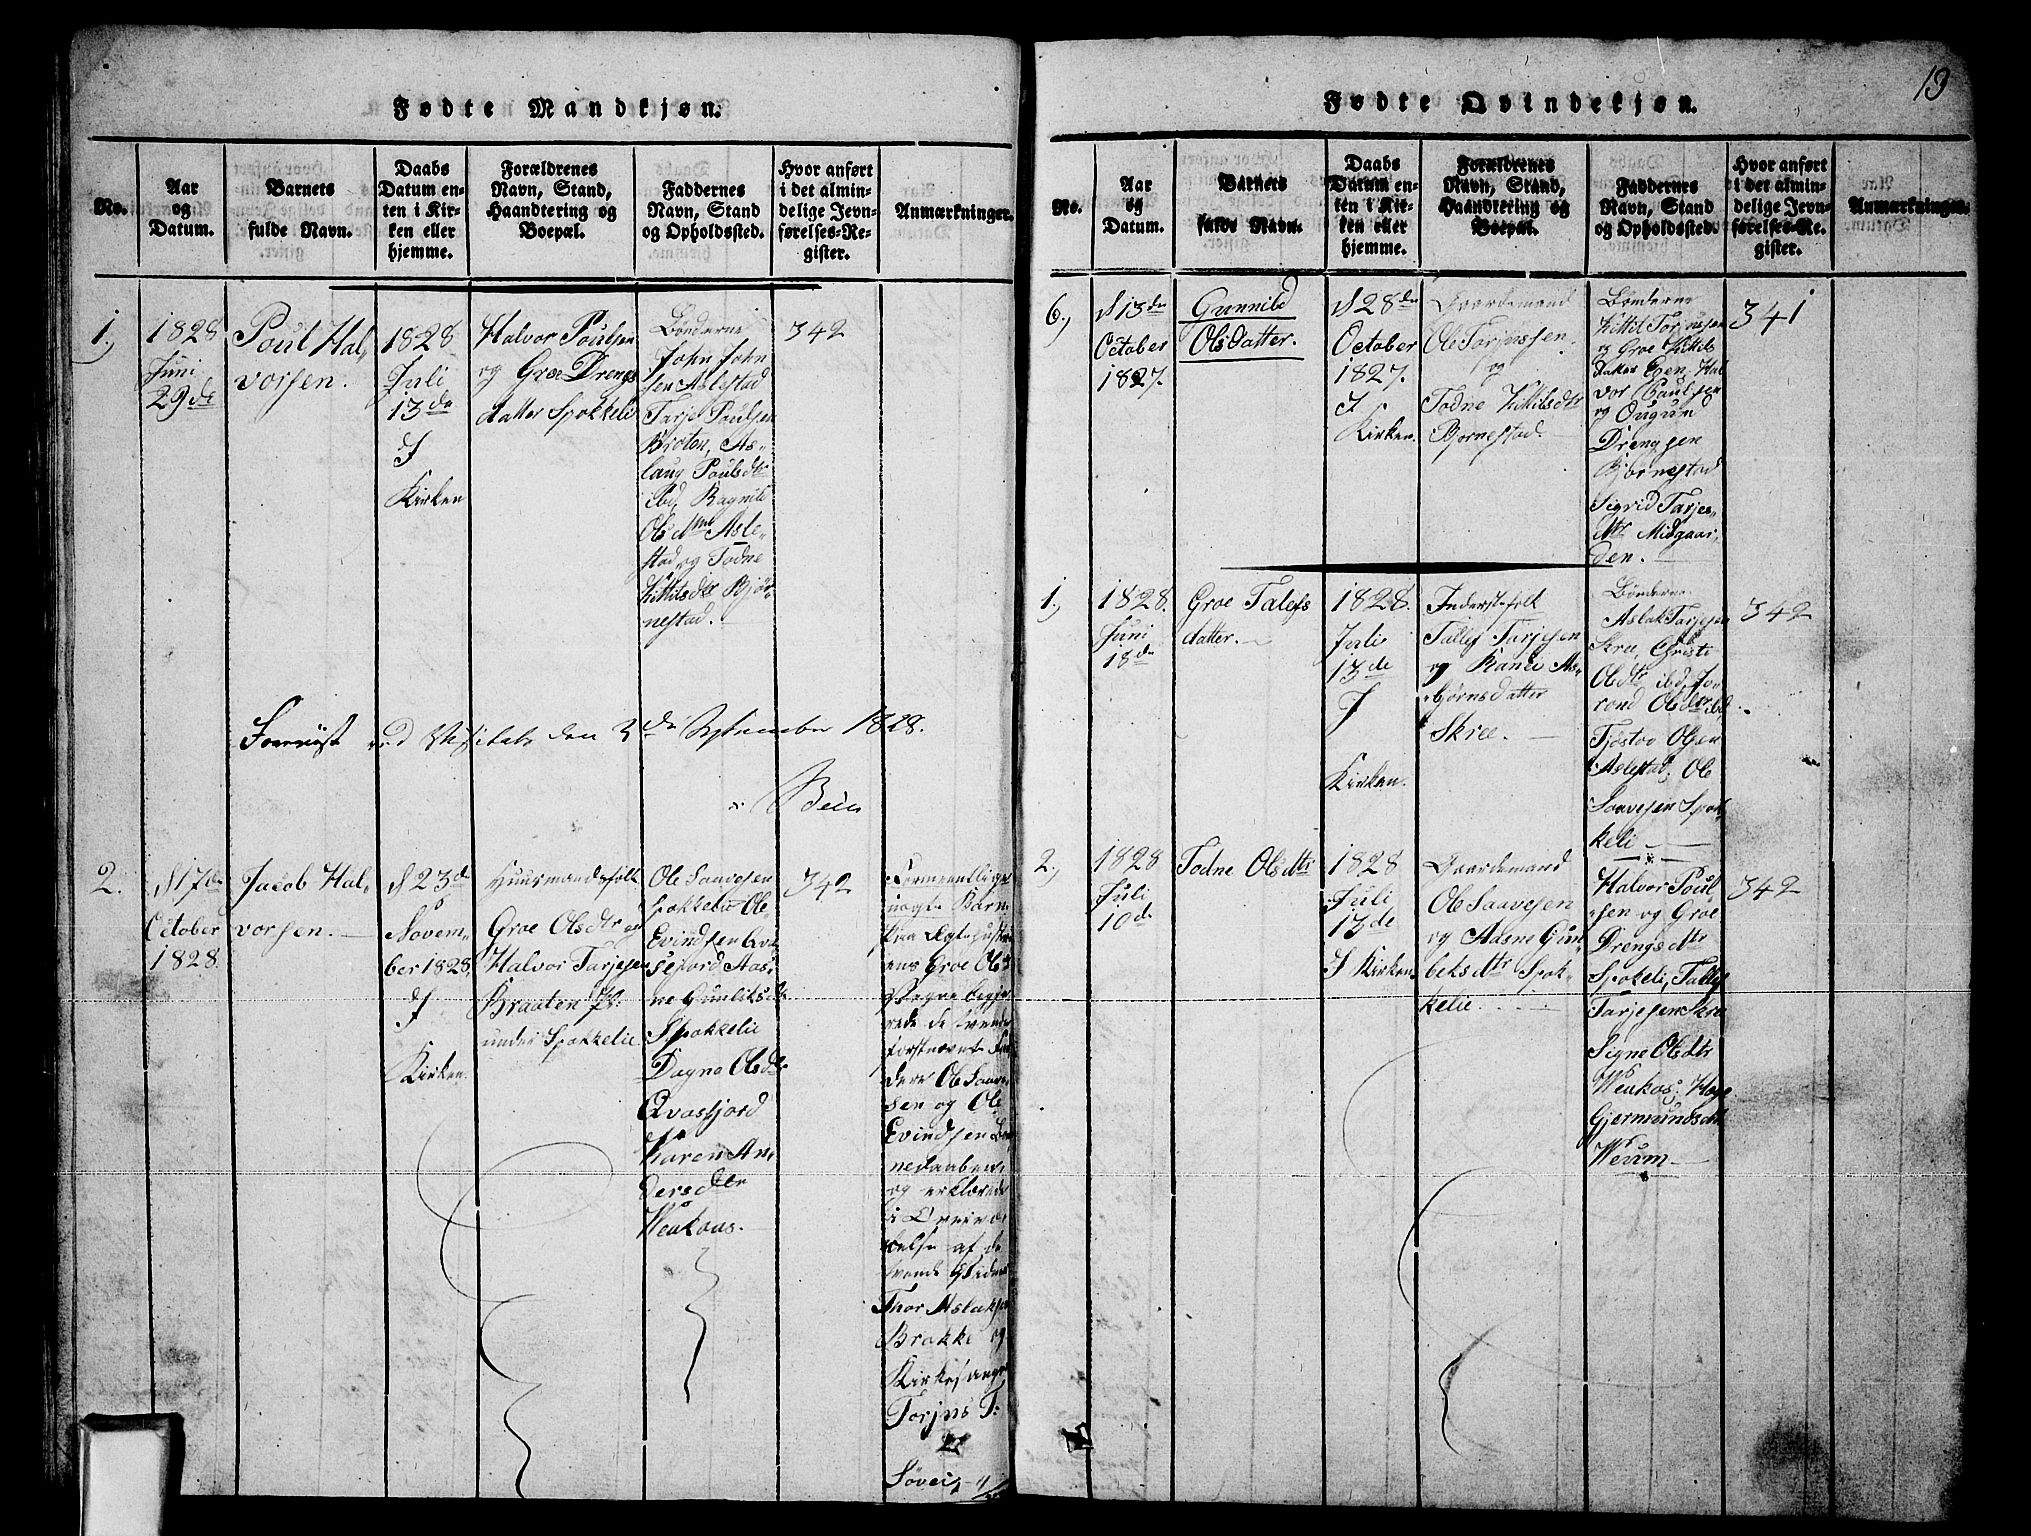 Fødte Mandkjøn.
No.
Aar
og
Datum.
Barnets
fulde Navn.
Daabs
Datum en-
ten i Kir-
ken eller
hjemme.
Forældrenes
Navn, Stand,
Haandtering og
Boepæl.
Faddernes
Navn, Stand
og Opholdssted.
Hvor anført
i det almin-
delige Jevn-
førelses-Re-
gister.
Anmærkninger.
1.)
1828
Juni
29de
Poul Hal,
vorsen.
1828
Juli
13de
I
Kirken
Halvor Poulsen
og Groe Drengs
datter Spokkelie
Bønderne
John John
sen Aslestad
Tarje Poulsen
Broten, As-
laug Poulsdtr
ibd, Ragnild
Olsdtr Asle-
stad og Todne
Kittilsdtr Bjør-
nestad.
342
Foreviist ved Visitats den 3de September 1828.
Bein
2.
d 17de
October
1828.
Jacob Hal-
vorsen.
d 23de
Novem-
ber 1828,
I
Kirken.
Huusmandsfolk
Groe Olsdtr og
Halvor Tarjesen
Braaten Pl:
under Spokkelie
Ole Saavesen
Spokkelie Ole
Evindsen Qva
sefjord Aas-
ne Gunliksdtr
Spokkelie
Dagne Olsdtr
Qvasfjord
Karen An,
dersdtr
Weukaas.
342
ens Groe Ols
rede de tvende
forstnævnte Fad
dere Ole Saave-
sen og Ole
Evindsen
nedaaben
og erklærede
i Overvæ-
relse af de
tvende Vidner
Thor Aslaksen
Brakke og
Kirkesanger
Torjus T:
Søvei
Fødte Qvindekjøn.
19
No.
Aar
og
Datum.
Barnets
fulde Navn.
Daabs
Datum en-
ten i Kir-
ken eller
hjemme.
Forældrenes
Navn, Stand,
Haandtering og
Boepæl.
Faddernes
Navn, Stand
og Opholdssted.
Hvor anført
i det almin-
delige Jevn-
førelses-Re-
gister.
Anmærkninger.
6.)
d 13de
October
1827.
Gunnild
Olsdatter.
d 28de
October
1827.
I
Kirken.
Gaardemand
Ole Torjussen
og
Todne Kittilsdtr
Bjørnestad.
Bønderne
Kittil Torjussen
og Groe Kittils
datter Eien, Hal
vor Poulsen
og Ougum
Drengsen
Bjørnestad
Sigrid Tarjes-
dtr Midgaar,
den.
341
1.)
1828.
Juni
18de
Groe Talefs
datter.
1828.
Juli
13de
I
Kirken.
Inderstfolk
Tallef Tarjesen
og Ranei As-
bjørnsdatter
Skree.
Bønderne
Aslak Tarjesen
Skree, Christi
Olsdtr ibd, Jo-
rond Olsdtr ibd,
Tjøstov Olsen
Aslestad, Ole
Saavesen Spok-
keli
342
2.)
1828
Juli
10de
Todne Olsdtr
1828
Juli
13de
I Kirken.
Gaardemand
Ole Saavesen
og Aasne Gun-
leksdtr Spok-
kelie.
Halvor Poul-
sen og Groe
Drengsdtr
Spokeli, Tallef
Tarjesen Skree
Signe Olsdtr
Weukas, Hæge
Gjermundsdtr
Weum
342